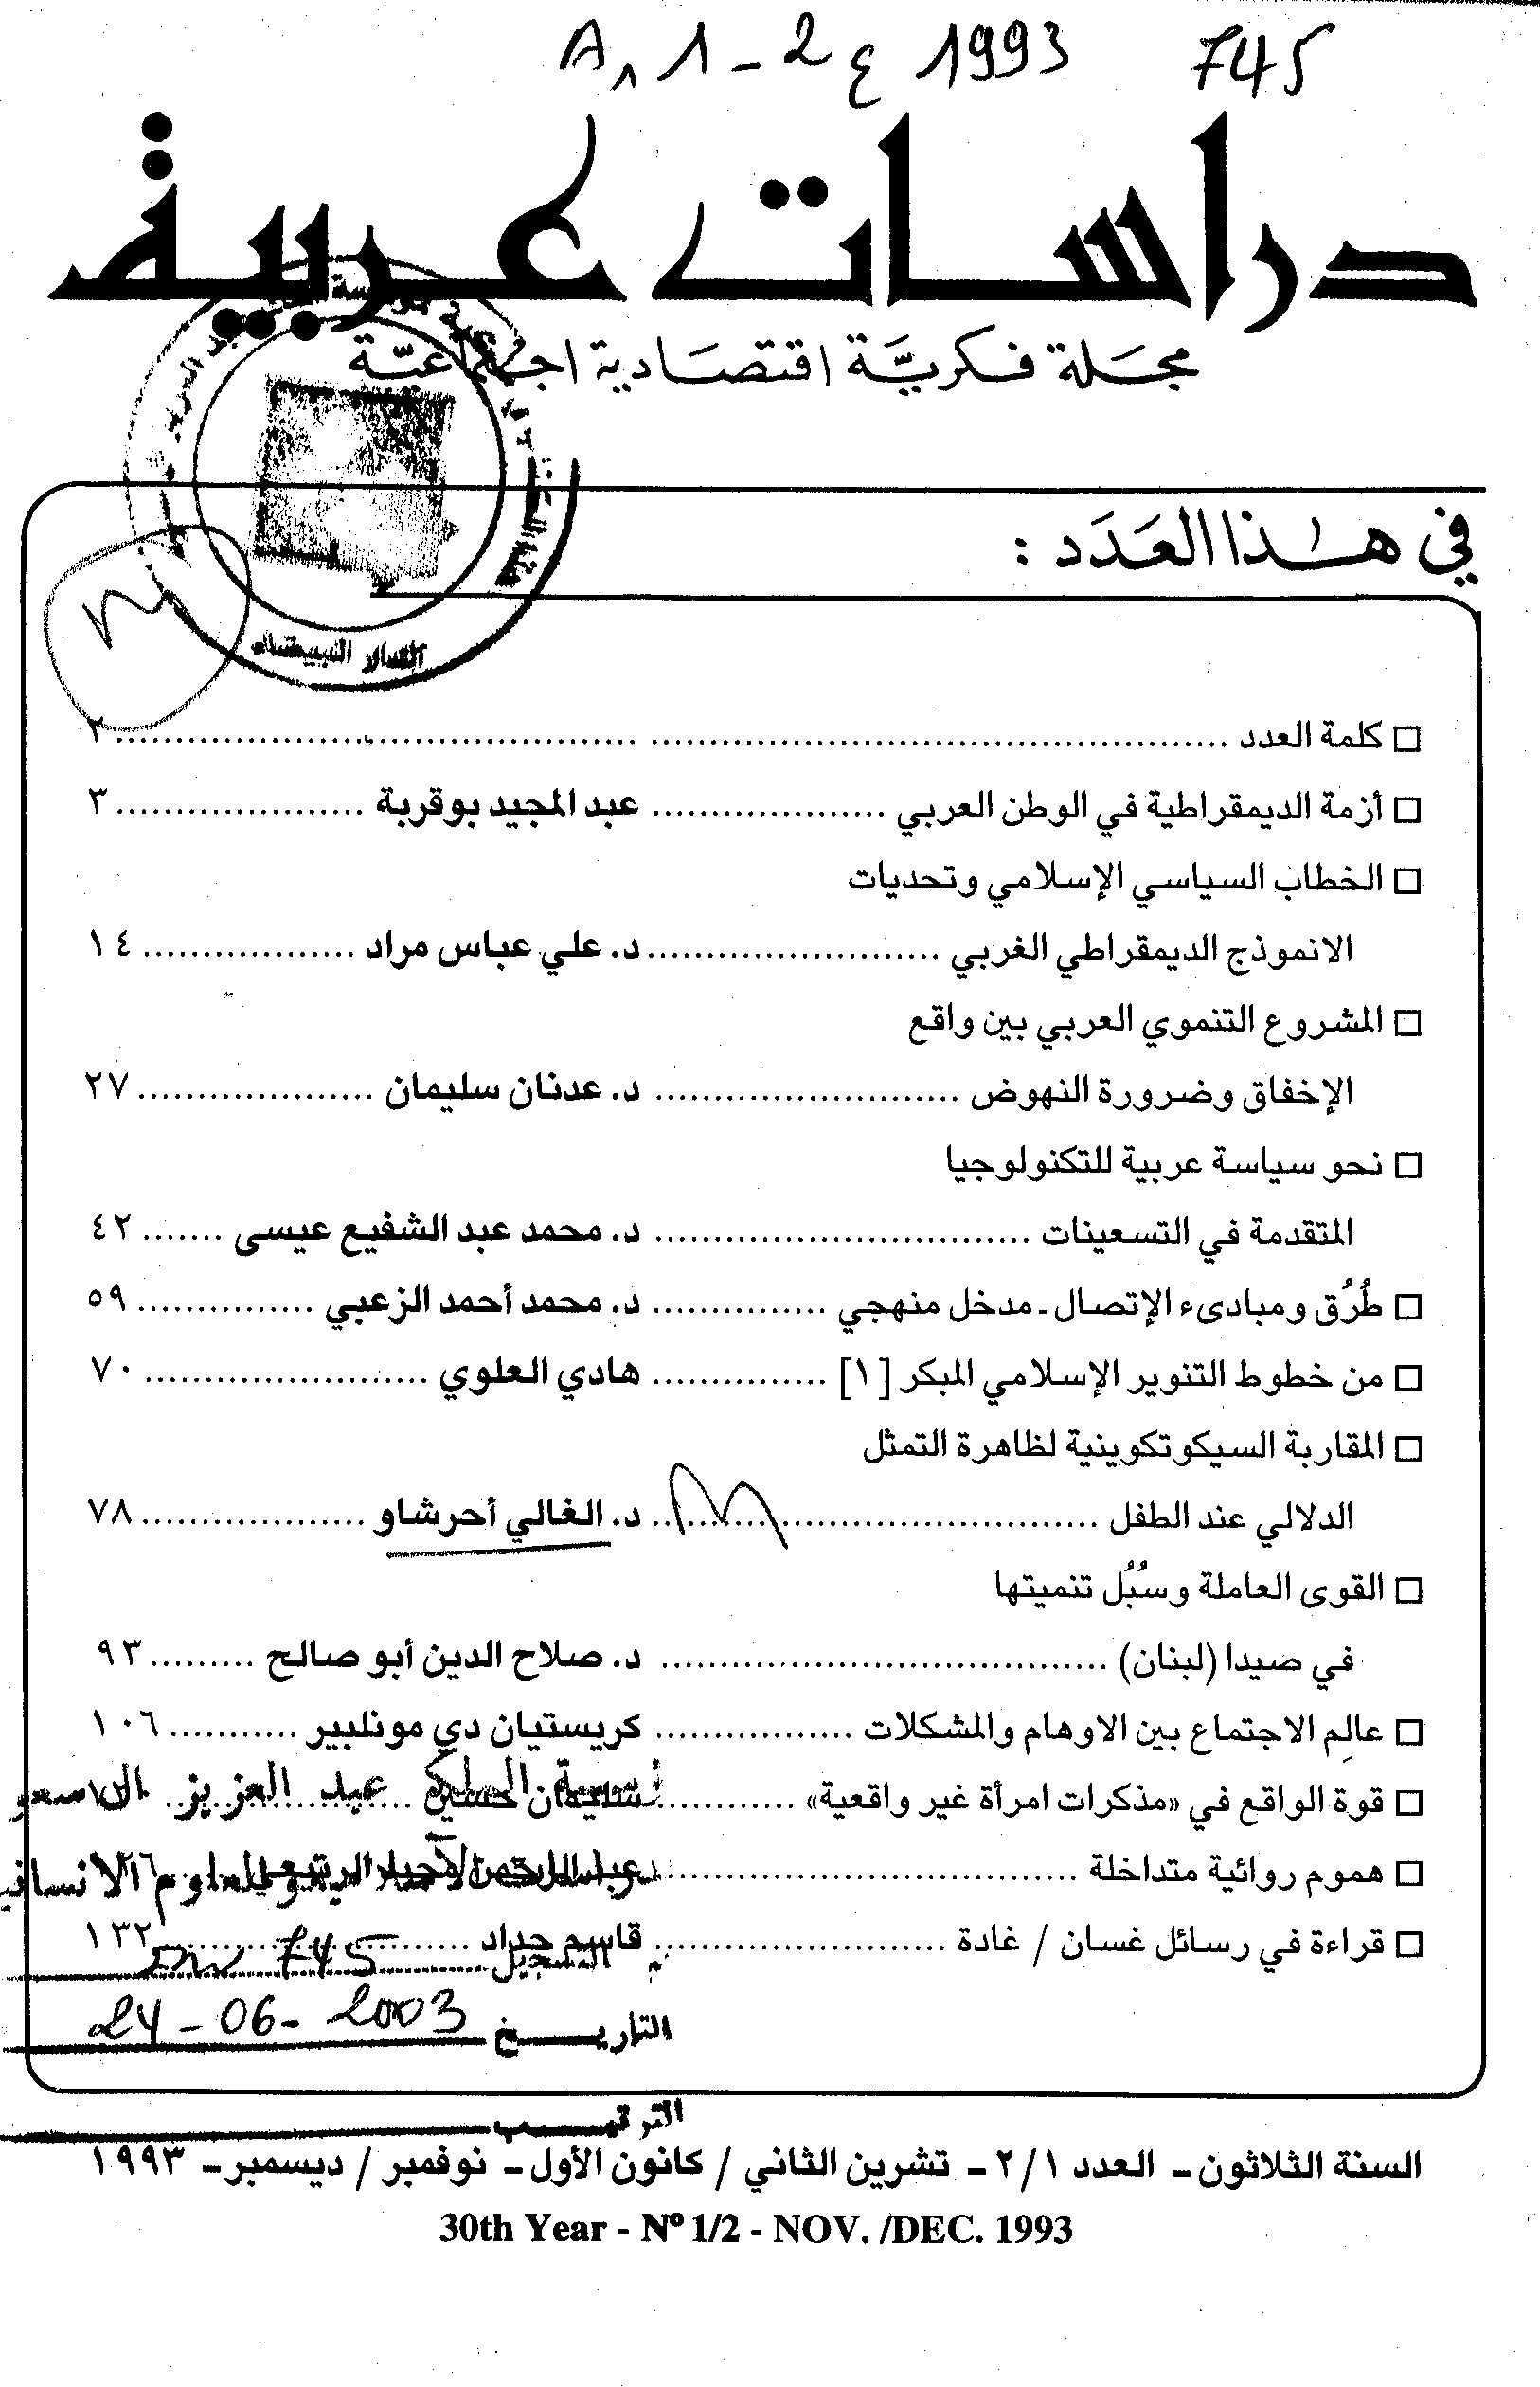 1-2 1993 745
دراسات عربية
مجلة فكريَّة اقتصَادية اجتماعيّة
الدار البيضاء
في هذا العَدَد :
□ كلمة العدد ........ ٢
□ أزمة الديمقراطية في الوطن العربي ........ عبد المجيد بوقربة ........ ٣
□ الخطاب السياسي الإسلامي وتحديات
الانموذج الديمقراطي الغربي ........ د. علي عباس مراد ........ ١٤
□ المشروع التنموي العربي بين واقع
الإخفاق وضرورة النهوض ........ د. عدنان سليمان ........ ٢٧
□ نحو سياسة عربية للتكنولوجيا
المتقدمة في التسعينات ........ د. محمد عبد الشفيع عيسى ........ ٤٢
□ طُرُق ومبادىء الإتصال ـ مدخل منهجي ........ د. محمد أحمد الزعبي ........ ٥٩
□ من خطوط التنوير الإسلامي المبكر [١] ........ هادي العلوي ........ ٧٠
□ المقاربة السيكوتكوينية لظاهرة التمثل
الدلالي عند الطفل ........ د. الغالي أحرشاو ........ ٧٨
□ القوى العاملة وسُبُل تنميتها
في صيدا (لبنان) ........ د. صلاح الدين أبو صالح ........ ٩٣
□ عالِم الاجتماع بين الاوهام والمشكلات ........ كريستيان دي مونلبير ........ ١٠٦
□ قوة الواقع في «مذكرات امرأة غير واقعية» ........ سليمان حسين ........
الملك عبد العزيز
□ هموم روائية متداخلة ........
□ قراءة في رسائل غسان / غادة ........ قاسم حداد ........ ١٣٢
التسجيل 745
التاريخ 24-06-2003
الترتيب
السنة الثلاثون ـ العدد ٢/١ ـ تشرين الثاني / كانون الأول ـ نوفمبر / ديسمبر ـ ١٩٩٣
30th Year - Nº 1/2 - NOV. /DEC. 1993